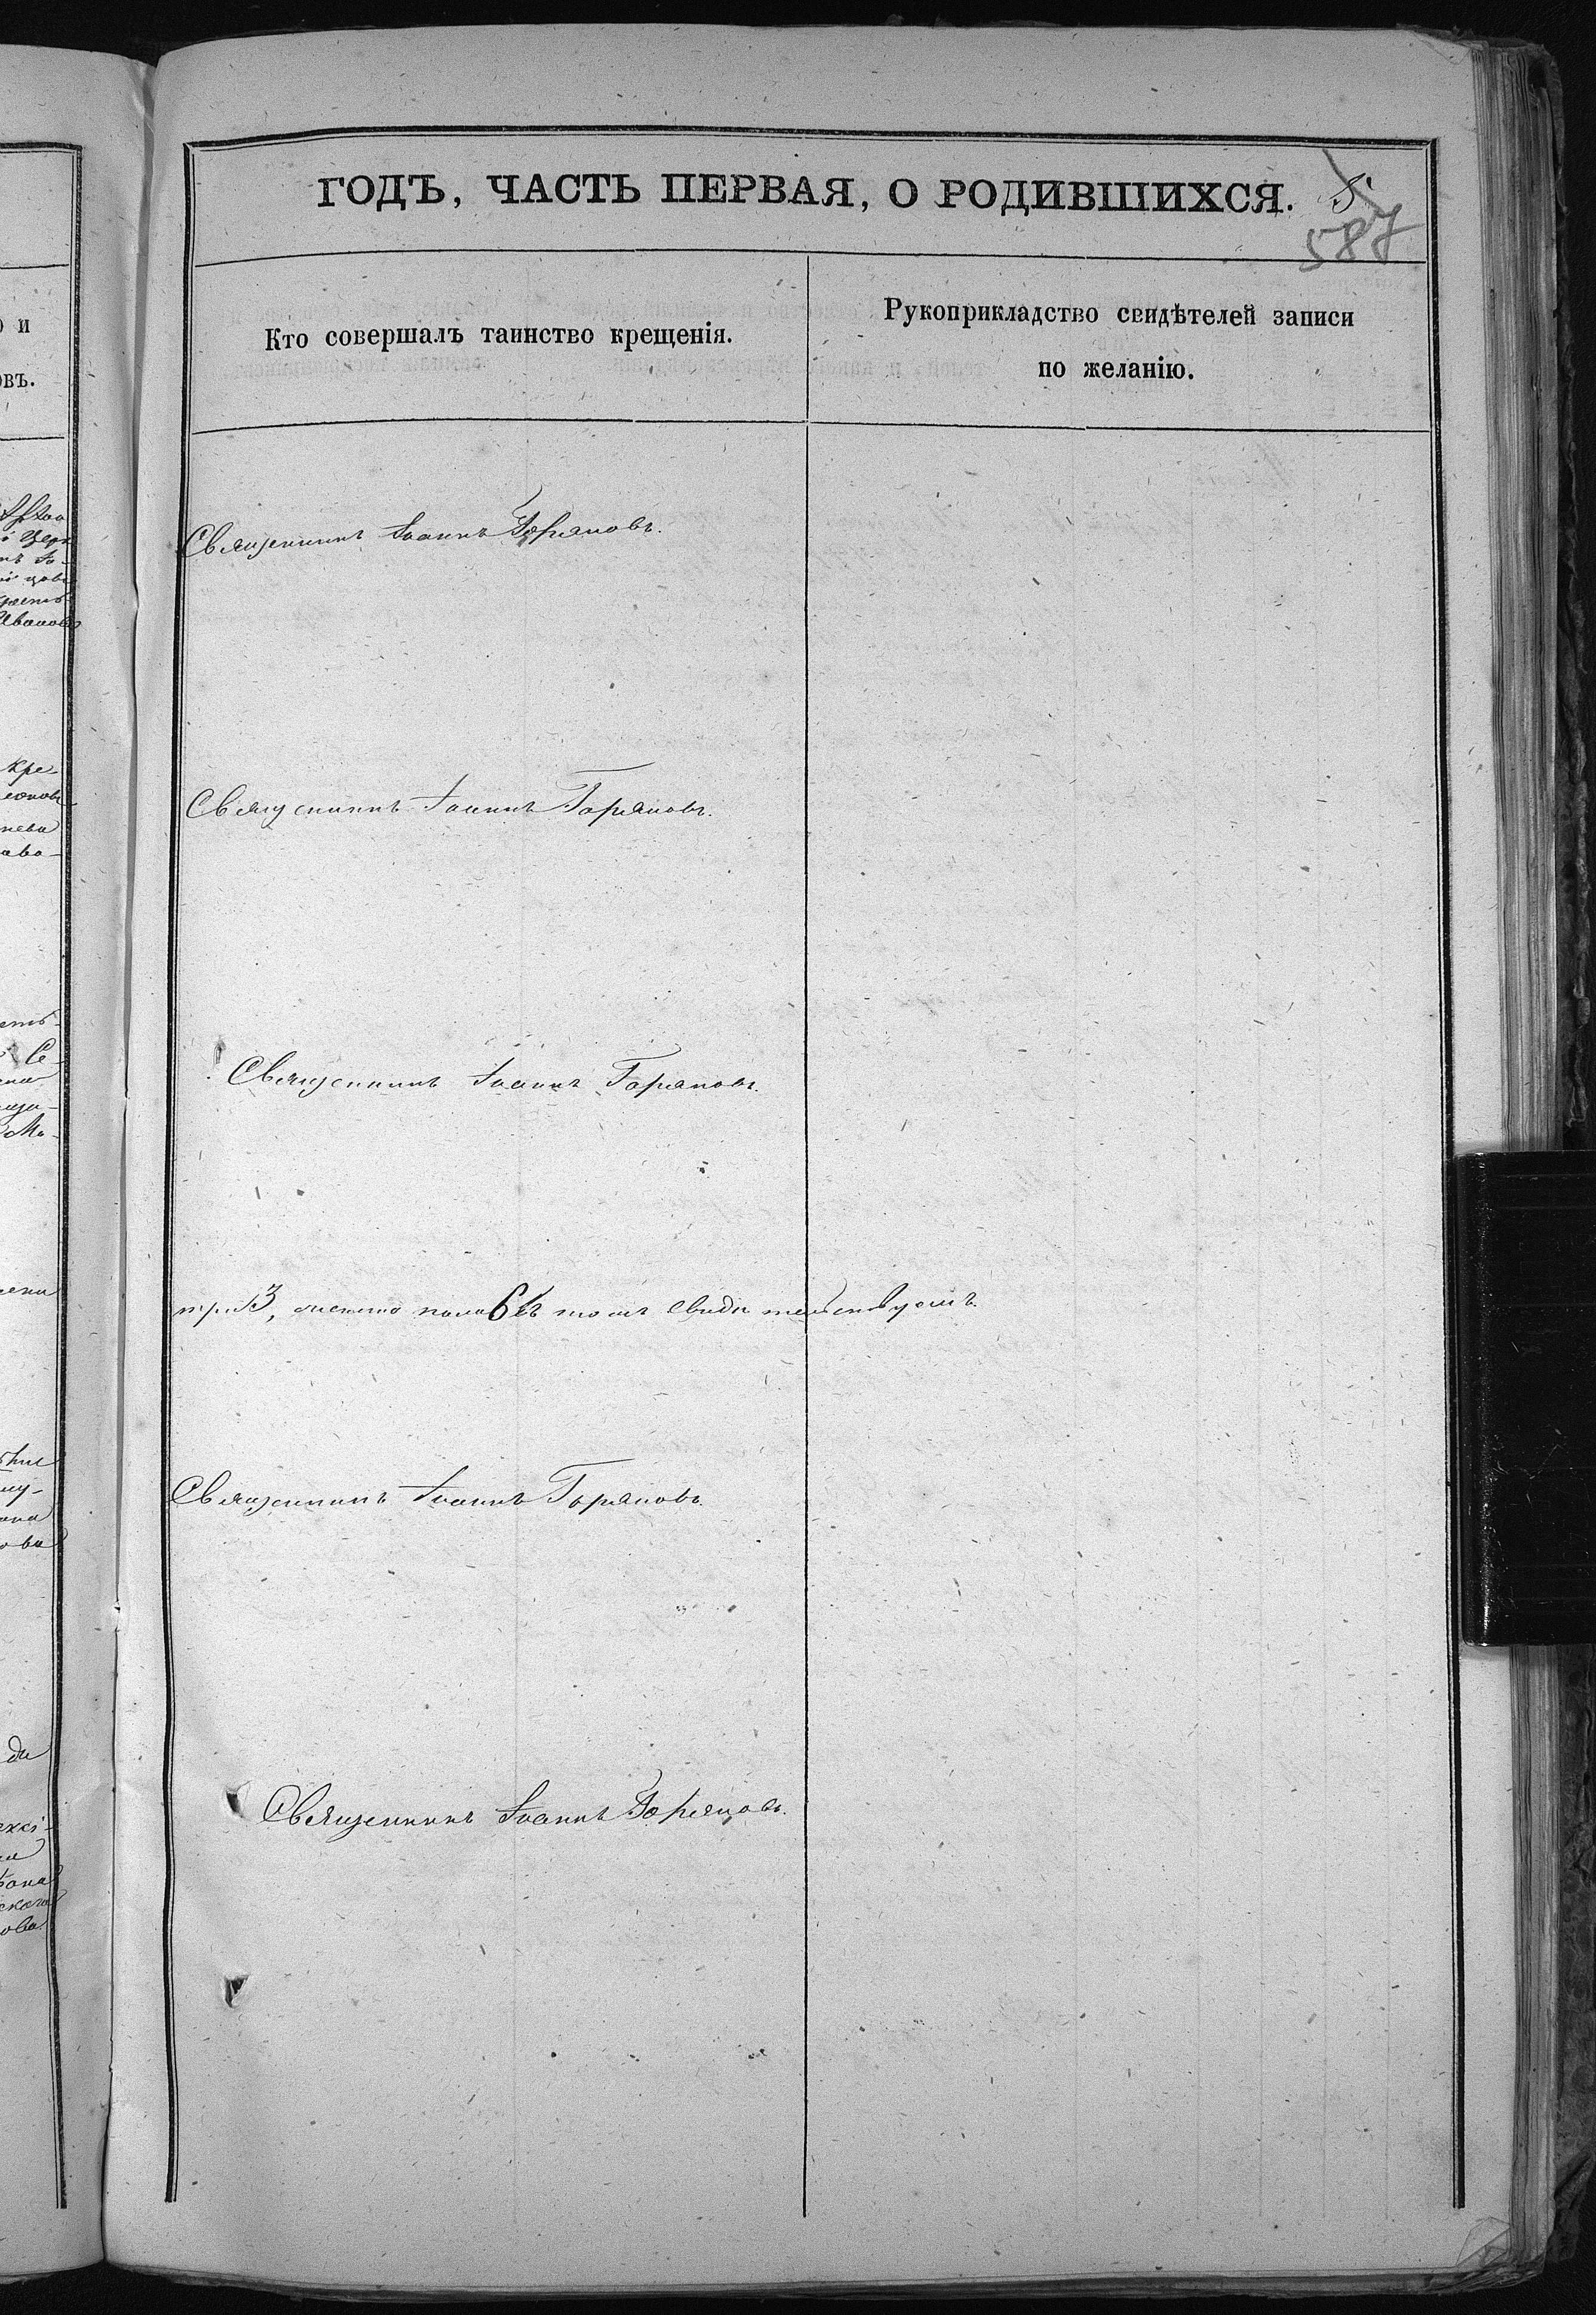 ГОДЪ, ЧАСТЬ ПЕРВАЯ, О РОДИВШИХСЯ.
5
587
Кто совершалъ таинство крещенія.
Рукоприкладство свидѣтелей записи
по желанію.
Священникъ Іоаннъ Горяновъ.
Священникъ Іоаннъ Горяновъ.
Священникъ Іоаннъ Горяновъ.
3, женска пола 6 въ томъ свидетельствуемъ.
Священникъ Іоаннъ Горяновъ.
Священникъ Іоаннъ Горяновъ.
и
овъ.
кре-